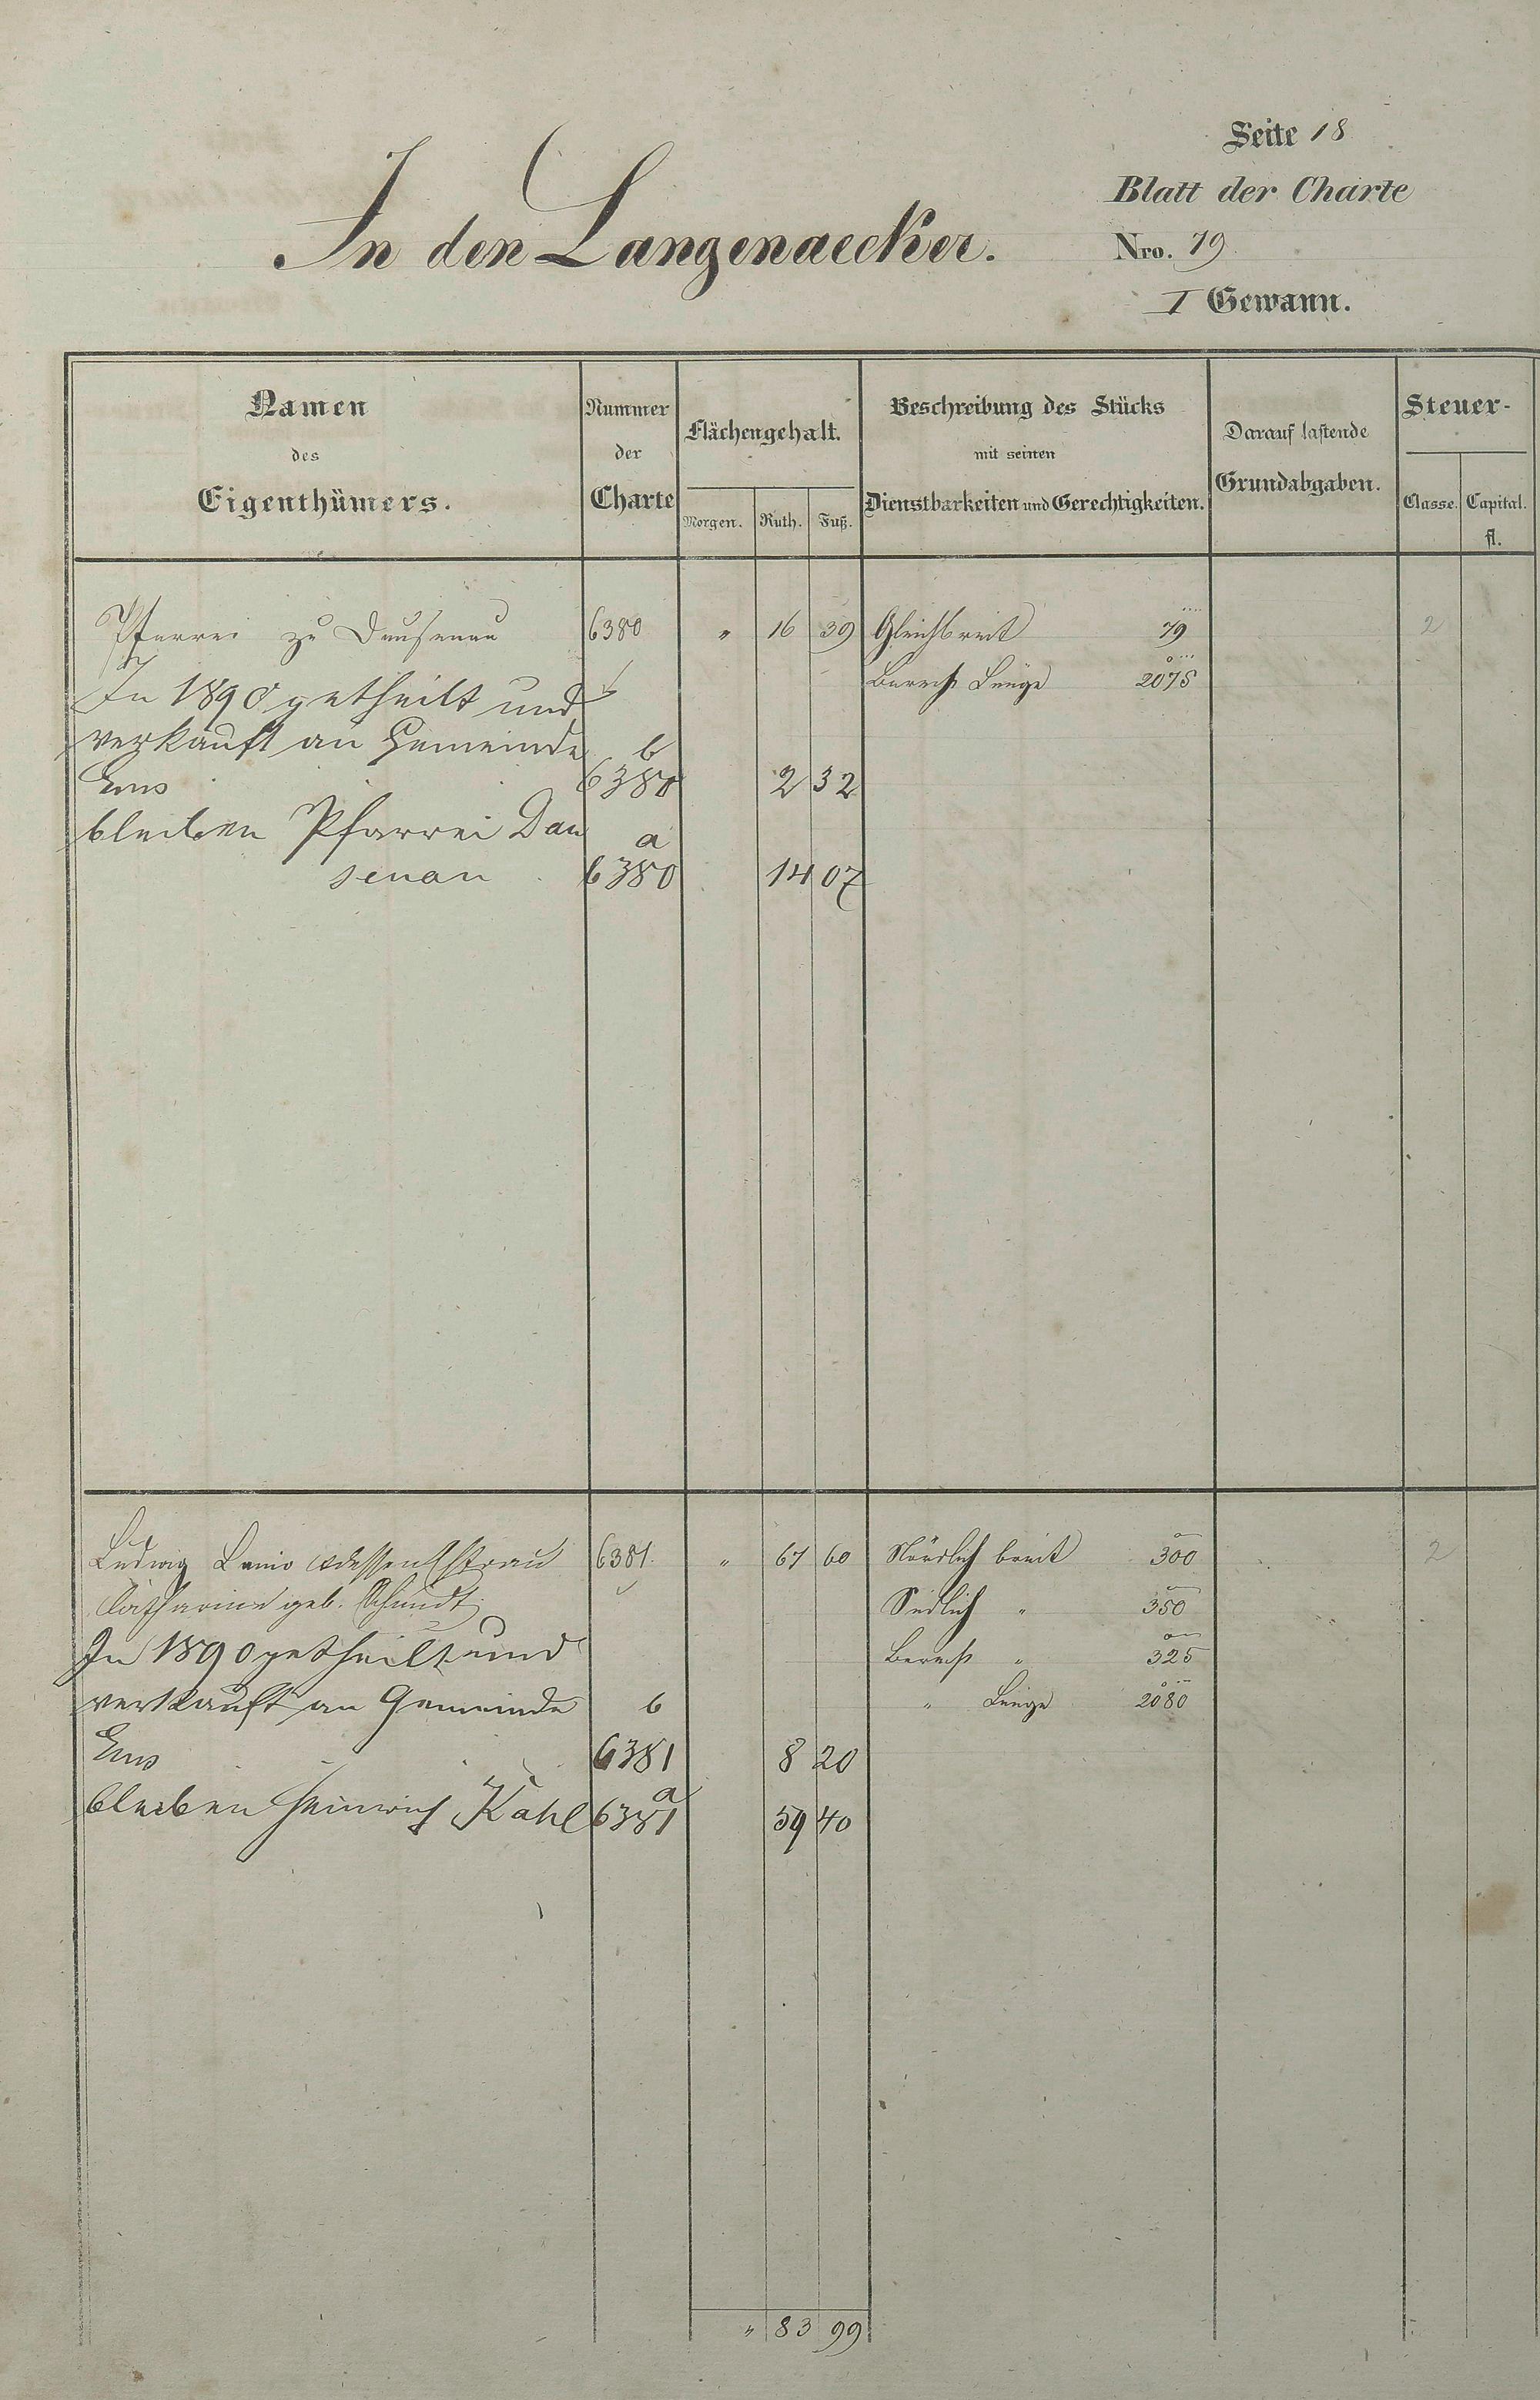 Seite 18
Blatt der Charte
In den Langenaecker.
Nro. 19
I Gewann.
Namen des Eigenthümers.
Nummer der Charte
Flächengehalt.
Morgen. Ruth. Fuß.
Beschreibung des Stücks mit seinen Dienstbarkeiten und Gerechtigkeiten.
Darauf lastende Grundabgaben.
Steuer-
Classe. Capital. fl.
Pfarrei zu Dausenau 6380 " 16 39 Gleichbreit 79 2
In 1890 getheilt und Berech Länge 2075
verkauft an Gemeinde b
Ems 6380 2 32
bleiben Pfarrei Dau a
senau 6380 14 07
Ludwig dessen Ehefrau 6381 " 67 60 Nördlich breit 300 2
Catharine geb. Schmidt Südlich " 350
In 1890 getheilt und Berech " 325
verkauft an Gemeinde b " Länge 2080
Ems 6381 8 20
bleiben Heinrich Kahl a 6381 59 40
" 83 99